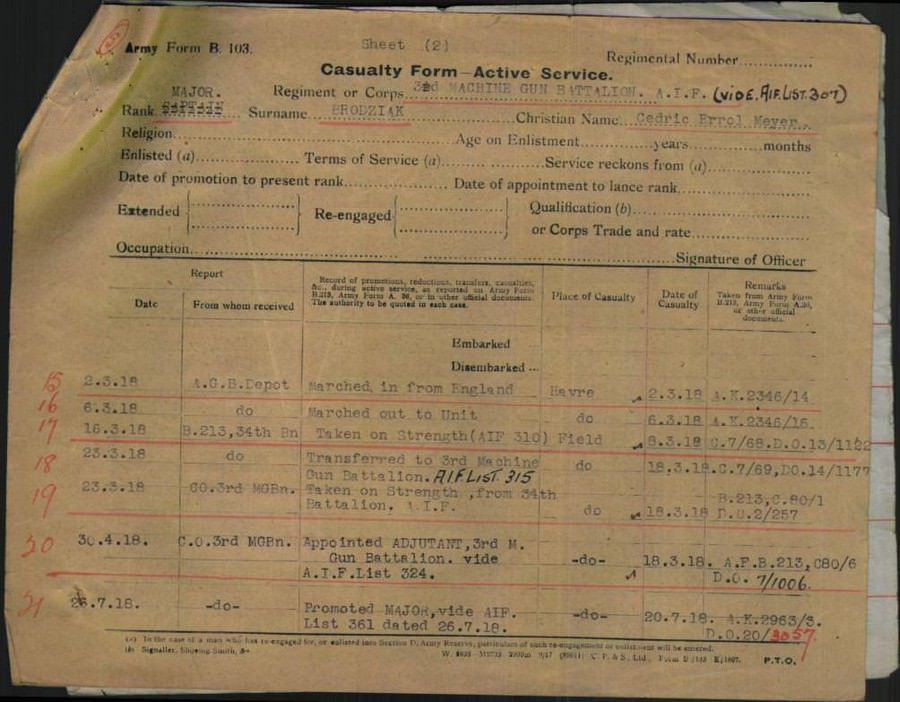 Army Form B. 103.
Sheet (2)
Regimental Number
Casualty Form—Active Service.
MAJOR.
Regiment or Corps 3rd MACHINE GUN BATTALION. A.I.F. (VIDE. AIF. LIST. 307)
Rank CAPTAIN Surname BRODZIAK Christian Name Cedric Errol Meyer
Religion Age on Enlistment years months
Enlisted (a) Terms of Service (a) Service reckons from (a)
Date of promotion to present rank Date of appointment to lance rank
Extended Re-engaged Qualification (b)
or Corps Trade and rate
Occupation Signature of Officer
Report
Date From whom received
Record of promotions, reductions, transfers, casualties, &c., during active service, as reported on Army Form B.213, Army Form A. 36, or in other official documents. The authority to be quoted in each case.
Place of Casualty
Date of Casualty
Remarks
Taken from Army Form B.213, Army Form A.36, or other official documents.
Embarked
Disembarked ...
15 2.3.18 A.G.B.Depot Marched in from England Havre 2.3.18 A.K.2346/14
16 6.3.18 do Marched out to Unit do 6.3.18 A.K.2346/16
17 16.3.18 B.213,34th Bn Taken on Strength(AIF 310) Field 8.3.18 C.7/68.D.O.13/1182
18 23.3.18 do Transferred to 3rd Machine do 18.3.18.C.7/69,DO.14/1177
Gun Battalion. A.I.F. LIST. 315
19 23.3.18 CO.3rd MGBn. Taken on Strength ,from 34th B.213,C.80/1
Battalion. A.I.F. do 18.3.18 D.O.2/257
20 30.4.18. C.O.3rd MGBn. Appointed ADJUTANT,3rd M.
Gun Battalion. vide -do- 18.3.18. A.F.B.213,C80/6
A.I.F.List 324. D.O. 7/1006.
21 26.7.18. -do- Promoted MAJOR,vide AIF. -do- 20.7.18. A.K.2963/3.
List 361 dated 26.7.18. D.O.20/3057.
(a) In the case of a man who has re-engaged for, or enlisted into Section D, Army Reserve, particulars of such re-engagement or enlistment will be entered.
(b) Signaller, Shoeing-Smith, &c.
P.T.O.